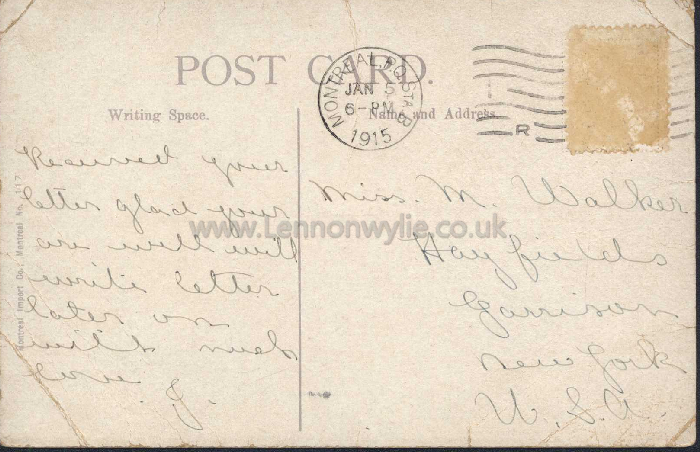 POST CARD.
MONTREAL, P.Q. STA. B
JAN 5
6-PM
1915
R
Writing Space.
Name and Address.
Received your
letter glad your
are well will
write letter
later on
with much
love J.
Miss. M. Walker
Hayfields
Garrison
New York
U.S.A.
Montreal Import Co.; Montreal No. 117
www.Lennonwylie.co.uk